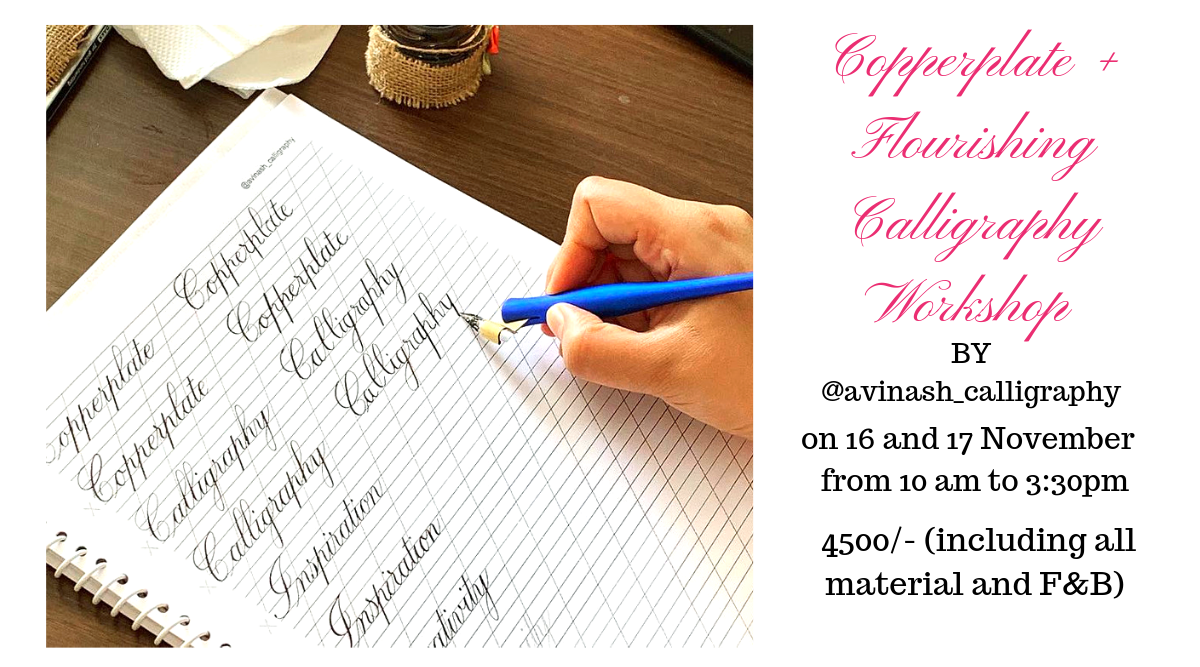 @avinash_calligraphy
Copperplate
Copperplate
Copperplate
Copperplate
Calligraphy
Calligraphy
Calligraphy
Calligraphy
Inspiration
Inspiration
Copperplate +
Flourishing
Calligraphy
Workshop
BY
@avinash_calligraphy
on 16 and 17 November
from 10 am to 3:30pm
4500/- (including all
material and F&B)